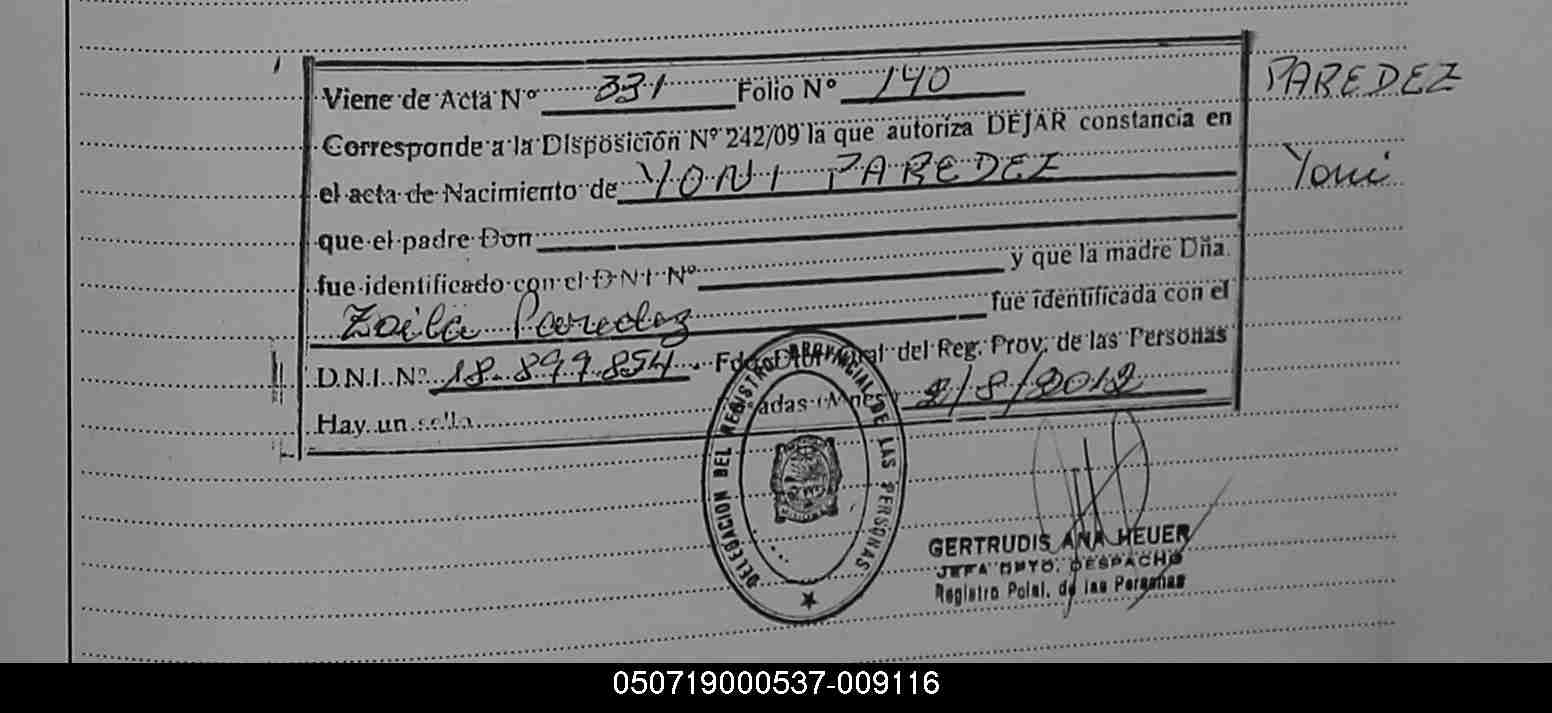 Viene de Acta Nº 331 Folio Nº 140
PAREDEZ
Corresponde a la Disposición Nº 242/09 la que autoriza DEJAR constancia en
el acta de Nacimiento de YONI PAREDEZ
Yoni
que el padre Don
fue identificado con el D N I Nº y que la madre Dña.
Zoila Paredez fue identificada con el
D.N.I. Nº 18.899.854. Fdo. ral del Reg. Prov. de las Personas
Hay un sello adas (Mnes) 2/8/2012
DELEGACION DEL REGISTRO PROVINCIAL DE LAS PERSONAS
GERTRUDIS ANA HEUER
JEFA DPTO. DESPACHO
Registro Pcial. de las Personas
050719000537-009116